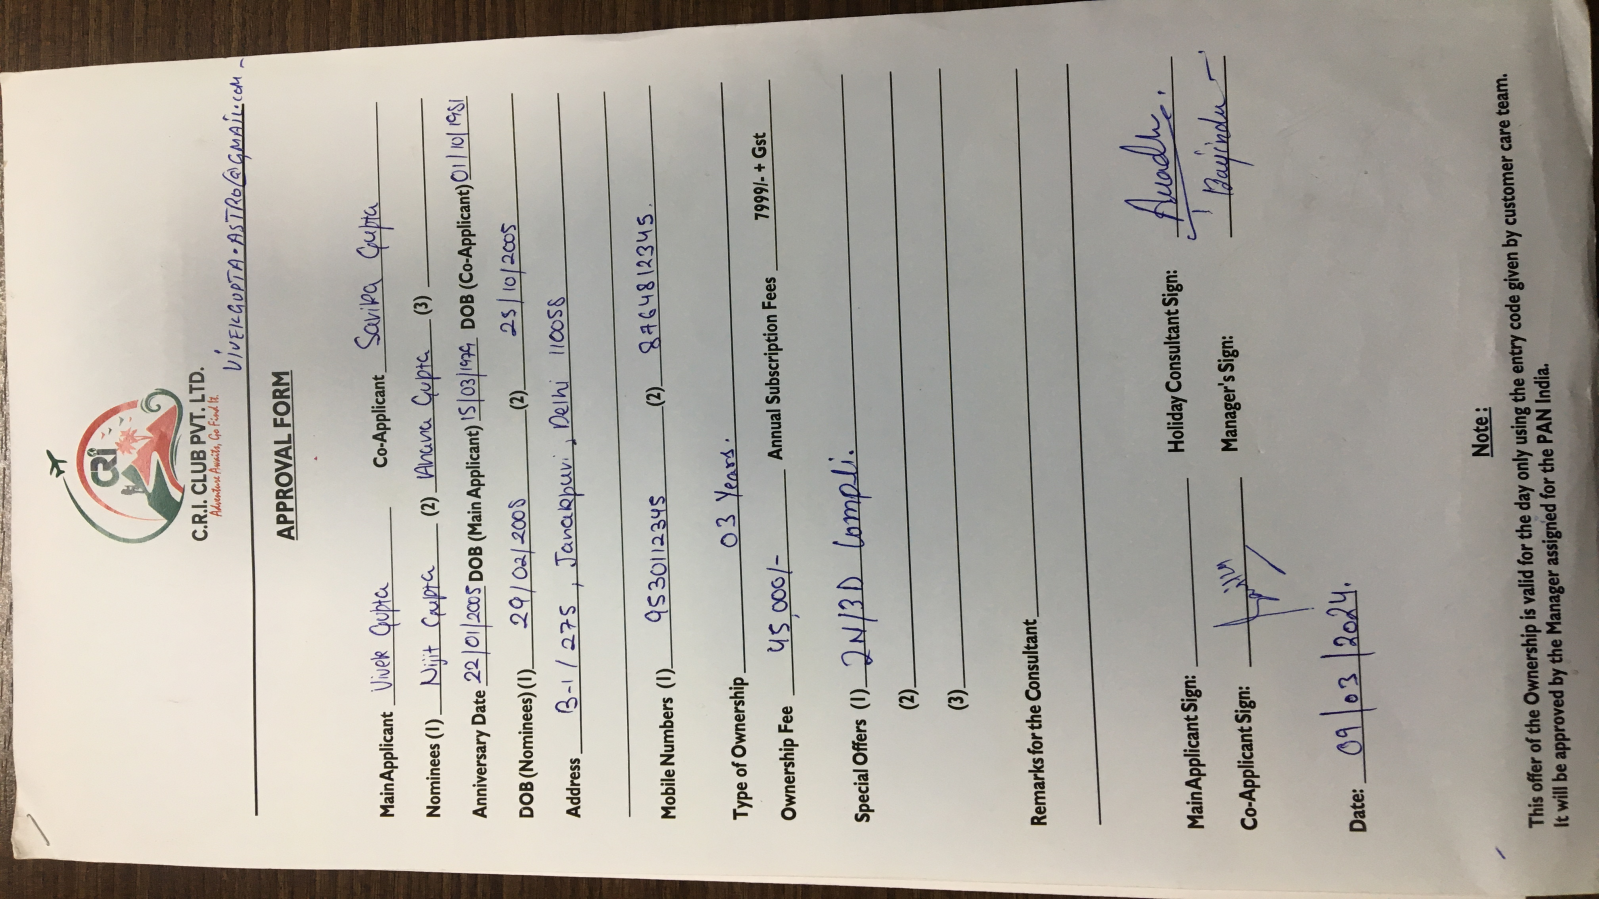 CRI
C.R.I. CLUB PVT. LTD.
Adventure Awaits, Go Find It.
VIVEKGUPTA.ASTRO@GMAIL.COM
APPROVAL FORM
Main Applicant Vivek Gupta Co-Applicant Savika Gupta
Nominees (1) Nijit Gupta (2) Ahana Gupta (3)
Anniversary Date 22/01/2005 DOB (Main Applicant) 15/03/1979 DOB (Co-Applicant) 01/10/1981
DOB (Nominees) (1) 29/02/2008 (2) 25/10/2005
Address B-1/275, Janakpuri, Delhi 110058
Mobile Numbers (1) 9530112345 (2) 8764812345.
Type of Ownership 03 Years.
Ownership Fee 45,000/- Annual Subscription Fees 7999/- + Gst
Special Offers (1) 2N/3D Compli.
(2)
(3)
Remarks for the Consultant
Main Applicant Sign: Holiday Consultant Sign:
Co-Applicant Sign: Manager's Sign:
Date: 09/03/2024.
Note :
This offer of the Ownership is valid for the day only using the entry code given by customer care team.
It will be approved by the Manager assigned for the PAN India.